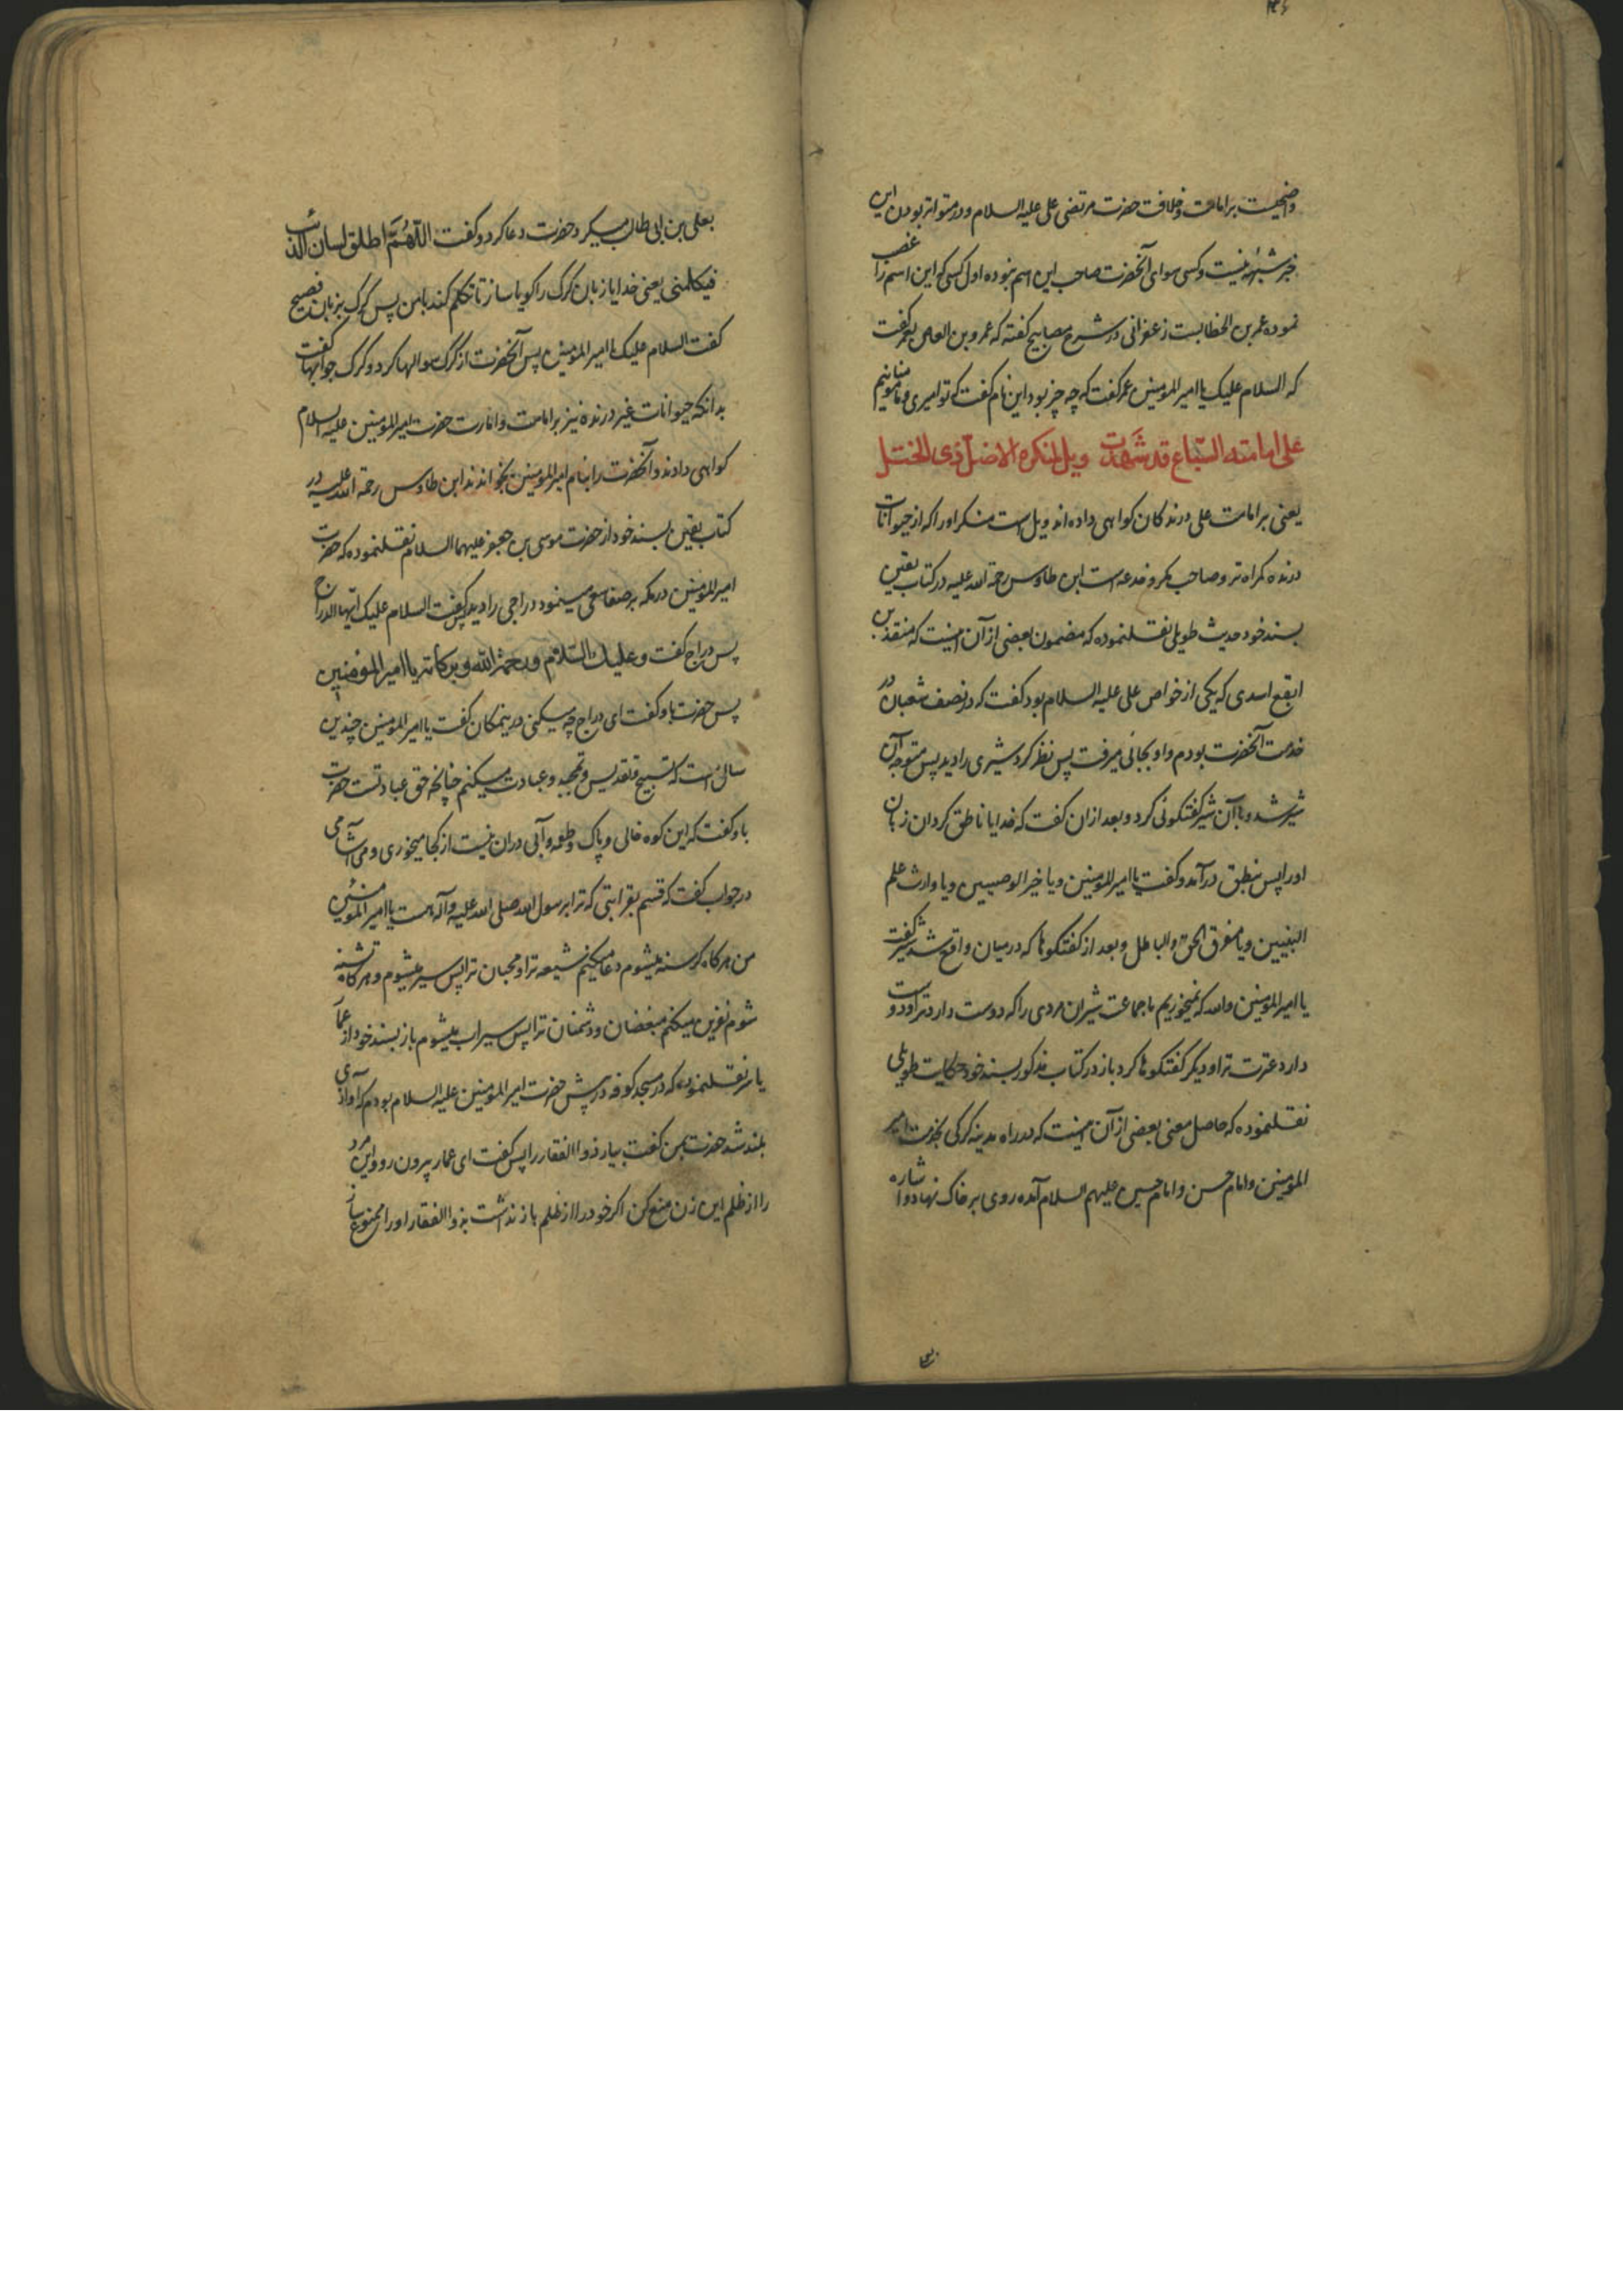 واضحیت بر امامت و خلافت حضرت مرتضی علی علیه السلام و در متواتر بودن این
خبر شبهه نیست و کسی سوای آنحضرت صاحب این اسم نبوده اول کسی که این اسم را غصب
نموده عمر بن الخطابست زعفرانی در شرح مصابیح گفته که عمرو بن العاص بعمر گفت
که السلام علیک یا امیر المومنین عمر گفت که چه چیز بود این نام گفت که تو امیری و ما مومنانیم
علی امامته السباع قد شهدت ویل لمنکره الاضل ذی الختل
یعنی بر امامت علی درندکان کواهی داده اند ویل است منکر او را که از حیوانات
درنده کمراه تر و صاحب مکر و خدعه است ابن طاوس رحمة الله علیه در کتاب یقین
بسند خود حدیث طویلی نقلنموده که مضمون بعضی از آن اینست که منقذ بن
ابقع اسدی که یکی از خواص علی علیه السلام بود گفت که در نصف شعبان در
خدمت آنحضرت بودم و او بجائی میرفت پس نظر کرد شیری را دید پس متوجه آن
شیر شد و با آن شیر گفتکوئی کرد و بعد ازان گفت که خدایا ناطق کردان زبان
او را پس بنطق درآمد و گفت یا امیر المومنین و یا خیر الوصیین و یا وارث علم
النبیین و یا مفرق الحق و الباطل و بعد از گفتکوها که در میان واقع شد شیر گفت
یا امیر المومنین والله که نمیخوریم ما جماعت شیران مردی را که دوست دارد ترا و دوست
دارد عترت ترا و دیکر گفتکوها کرد باز در کتاب مذکور بسند خود حکایت طویلی
نقلنموده که حاصل معنی بعضی از آن اینست که در راه مدینه کرکی بخدمت امیر
المومنین و امام حسن و امام حسین علیهم السلام آمده روی بر خاک نهاد و اشاره
بعلی بن ابی طالب میکرد حضرت دعا کرد و گفت اللّهُمَّ اطلق لسان الذئب
فیکلمنی یعنی خدایا زبان کرک را کویا ساز تا تکلم کند با من پس کرک بزبان فصیح
گفت السلام علیک یا امیر المومنین پس آنحضرت از کرک سوالها کرد و کرک جوابها گفت
بدانکه حیوانات غیر درنده نیز بر امامت و امارت حضرت امیر المومنین علیه السلام
کواهی دادند و آنحضرت را بنام امیر المومنین بخواندند ابن طاوس رحمة الله علیه در
کتاب یقین بسند خود از حضرت موسی بن جعفر علیهما السلام نقلنموده که حضرت
امیر المومنین در مکه بر صفا سعی مینمود دراجی را دید پس گفت السلام علیک ایها الدراج
پس دراج گفت و علیک السّلام ورحمة الله وبرکاته یا امیر المؤمنین
پس حضرت باو گفت ای دراج چه میکنی در ینمکان گفت یا امیر المومنین چندین
سال است که تسبیح و تقدیس و تمجید و عبادت میکنم چنانچه حق عبادتست حضرت
باو گفت که این کوه خالی و پاک و طعمه و آبی دران نیست از کجا میخوری و می آشامی
در جواب گفت که قسم بقرابتی که ترا برسول الله صلی الله علیه وآله هست یا امیر المومنین
من هرکاه کرسنه میشوم دعا میکنم شیعه ترا و محبان ترا پس سیر میشوم و هرکاه تشنه
شوم نفرین میکنم مبغضان و دشمنان ترا پس سیراب میشوم باز بسند خود از عمار
یاسر نقلنموده که در مسجد کوفه در پیش حضرت امیر المومنین علیه السلام بودم که آوازی
بلند شد حضرت بمن گفت بیار ذوالفقار را پس گفت ای عمار بیرون رو و این مرد
را از ظلم این زن منع کن اکر خود را از ظلم باز نداشت بذوالفقار او را ممنوع ساز